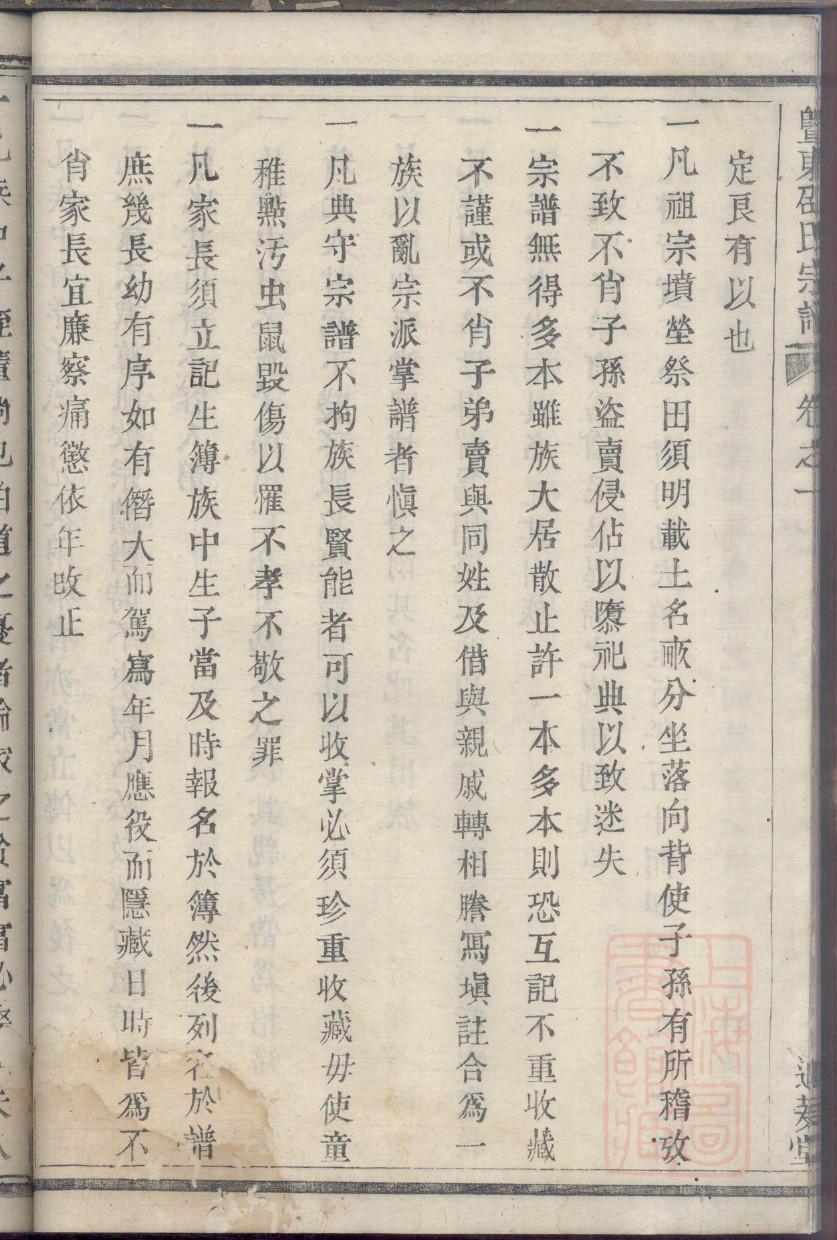 暨東邵氏宗譜 卷之一
定良有以也
一凡祖宗墳塋祭田須明載土名畝分坐落向背使子孫有所稽攷
不致不肖子孫盜賣侵佔以隳祀典以致迷失
一宗譜無得多本雖族大居散止許一本多本則恐互記不重收藏
不謹或不肖子弟賣與同姓及借與親戚轉相謄寫塡註合爲一
族以亂宗派掌譜者愼之
一凡典守宗譜不拘族長賢能者可以收掌必須珍重收藏毋使童
稚㸃汚虫鼠毀傷以罹不孝不敬之罪
一凡家長須立記生簿族中生子當及時報名於簿然後列在於譜
庶幾長幼有序如有僭大而駕寫年月應役而隱藏日時皆爲不
肖家長宜廉察痛懲依年改正
上海圖書館藏